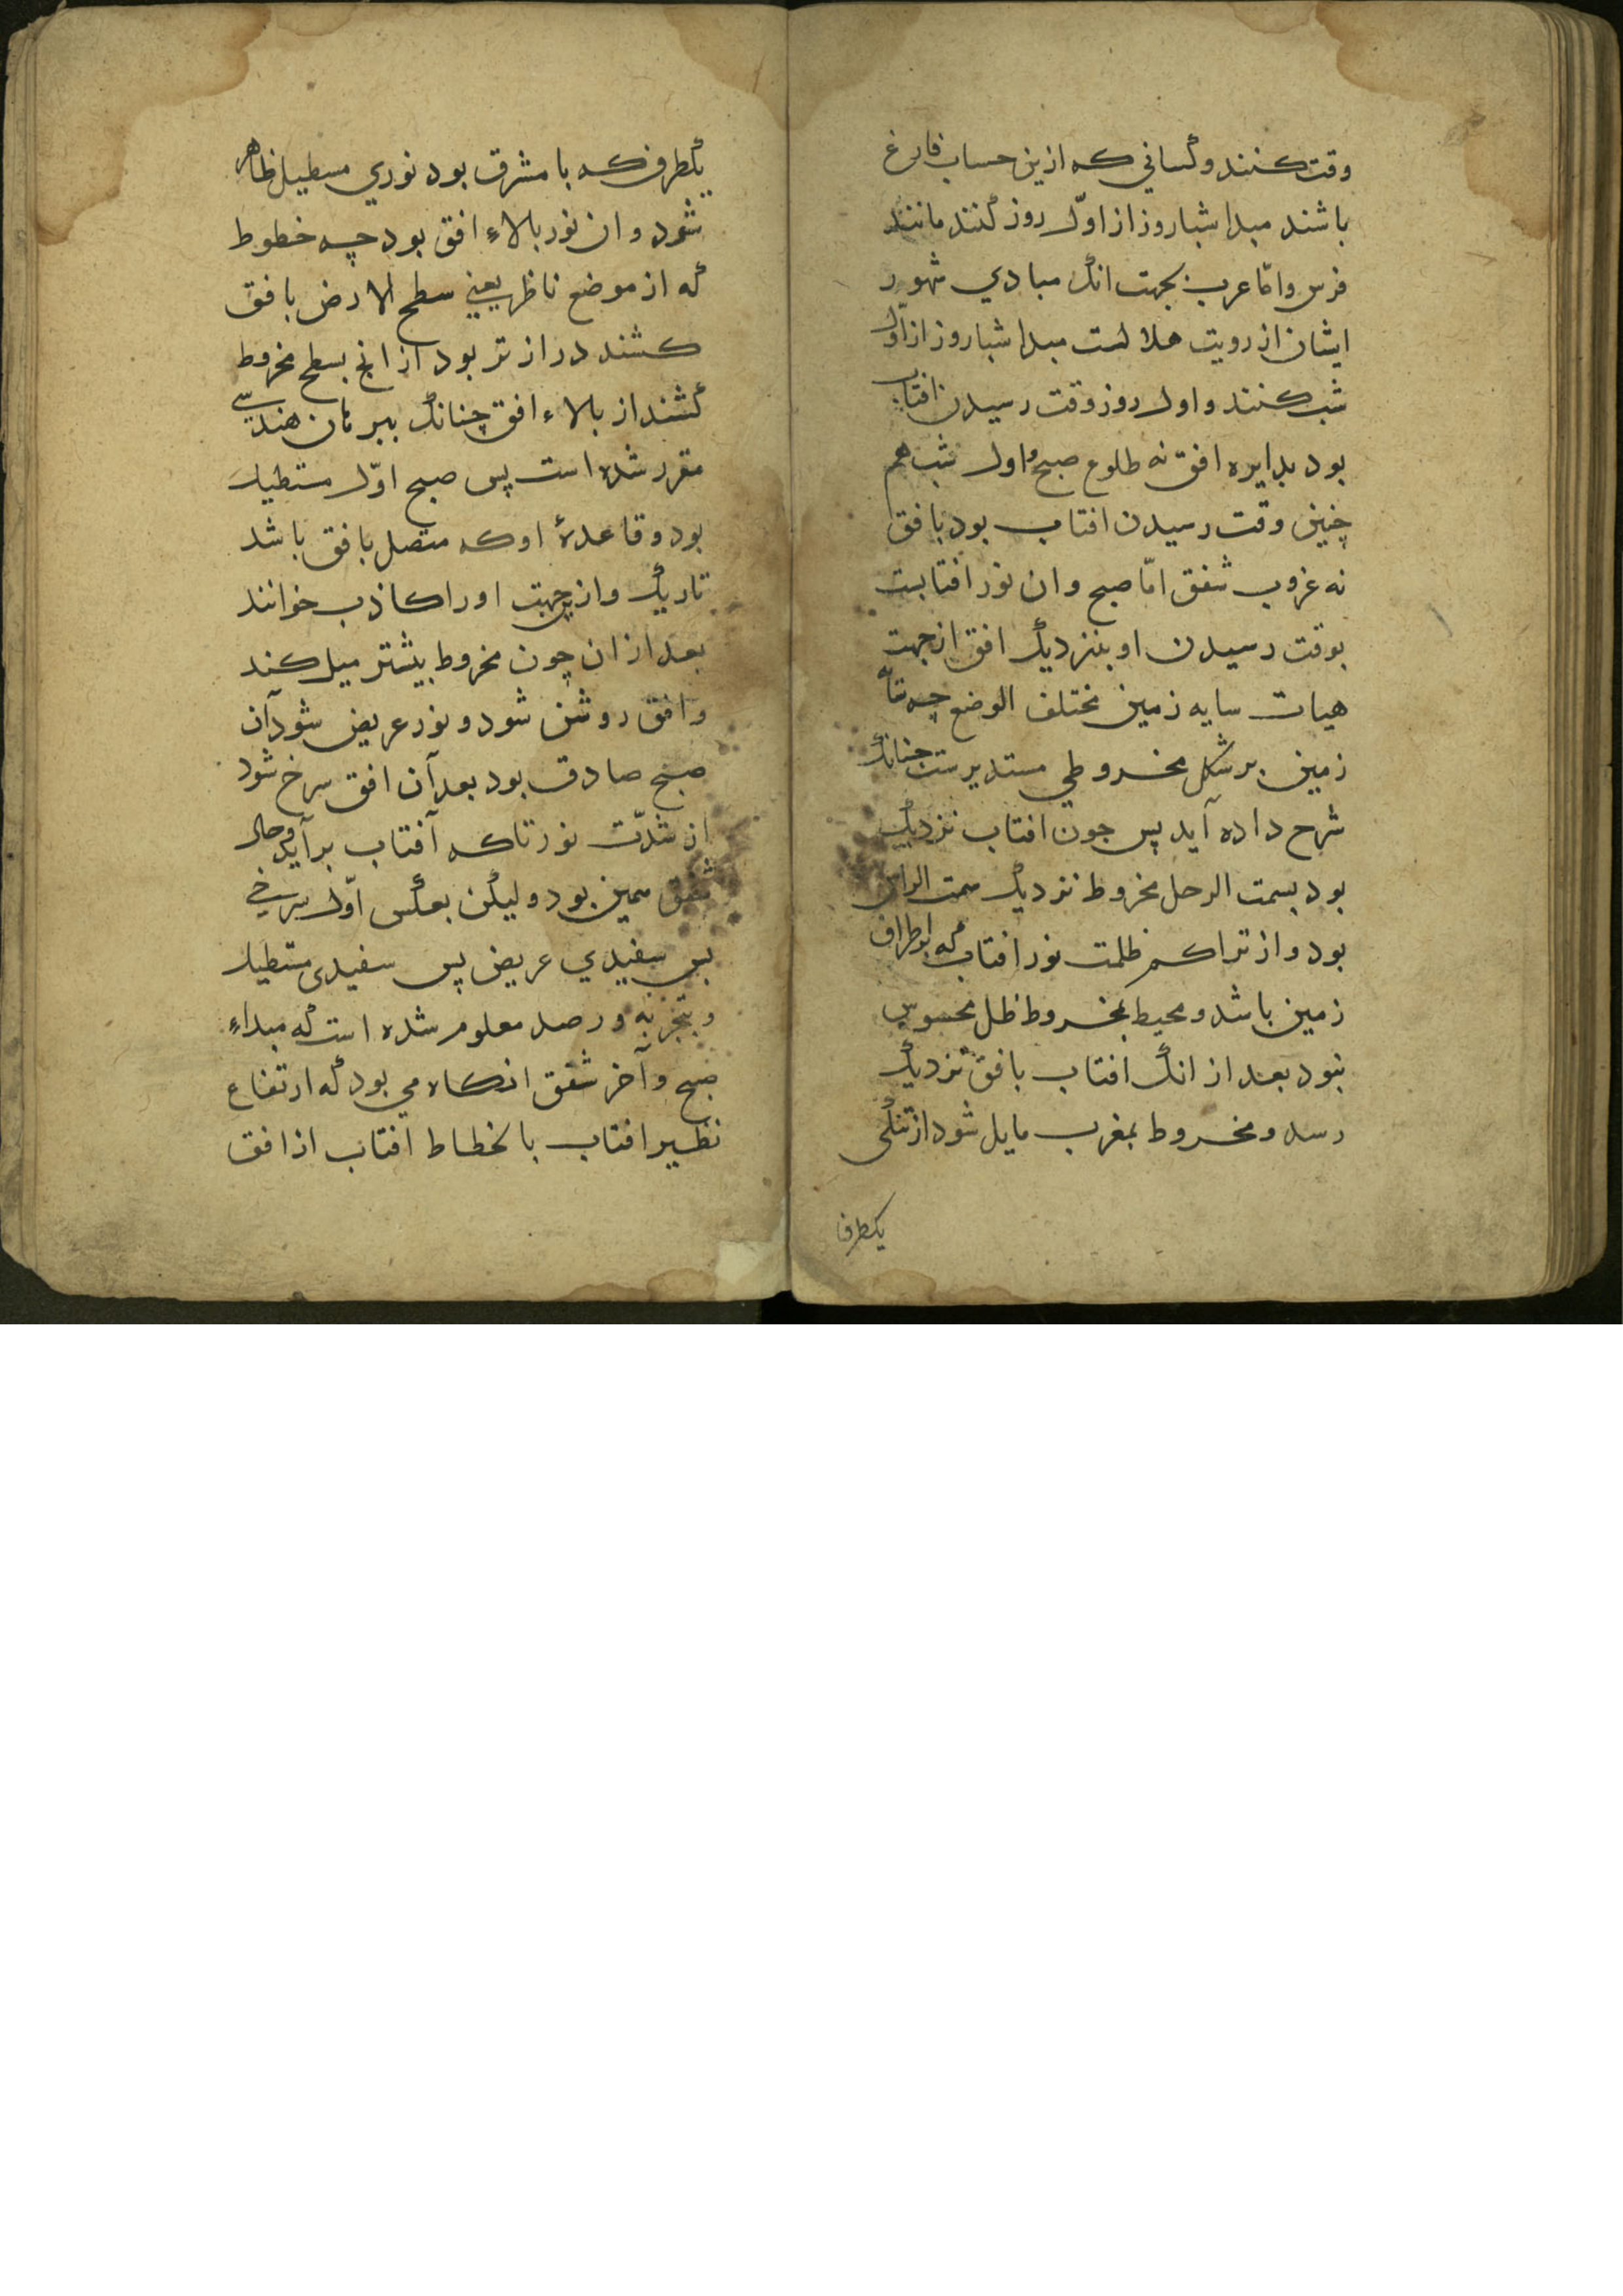 وقت کنند و کسانی که ازین حساب فارغ
باشند مبدا شباروز از اوّل روز کنند مانند
فرس و امّا عرب بجهت انک مبادی شهور
ایشان از رویت هلالست مبدا شباروز از اوّل
شب کنند و اول روز وقت رسیدن افتاب
بود بدایره افق نه طلوع صبح و اول شب هم
چنین وقت رسیدن افتاب بود بافق
نه غروب شفق امّا صبح و ان نور افتابست
بوقت رسیدن او بنزدیک افق از جهت
هیات سایه زمین مختلف الوضع چه
زمین بر شکل مخروطی مستدیرست چنانک
شرح داده آید پس جون افتاب نزدیک
بود بسمت الرحل مخروط نزدیک سمت الراس
بود و از تراکم ظلمت نور افتاب که بر اطراف
زمین باشد و محیط بمخروط ظل محسوس
نبود بعد از انک افتاب بافق نزدیک
رسد و مخروط بمغرب مایل شود از تنکی
یکطرف
یکطرف که با مشرق بود نوری مسطیل ظاهر
شود و ان نور بالاء افق بود چه خطوط
که از موضع ناظر یعنی سطح الارض بافق
کشند درازتر بود از انچ بسطح مخروط
کشند از بالاء افق چنانک ببرهان هندسی
مقرر شده است پس صبح اوّل مستطیل
بود و قاعدهٔ او که متصل بافق باشد
تاریک و ازیجهت او را کاذب خوانند
بعد از ان چون مخروط بیشتر میل کند
و افق روشن شود و نور عریض شود آن
صبح صادق بود بعد آن افق سرخ شود
از شدّت نور تا که آفتاب برآید و حال
شفق همین بود ولیکن بعکس اوّل سرخی
پس سفیدی عریض پس سفیدی مستطیل
و بتجربه و رصد معلوم شده است که مبداء
صبح و آخر شفق انکاه می بود که ارتفاع
نظیر افتاب با انحطاط افتاب از افق